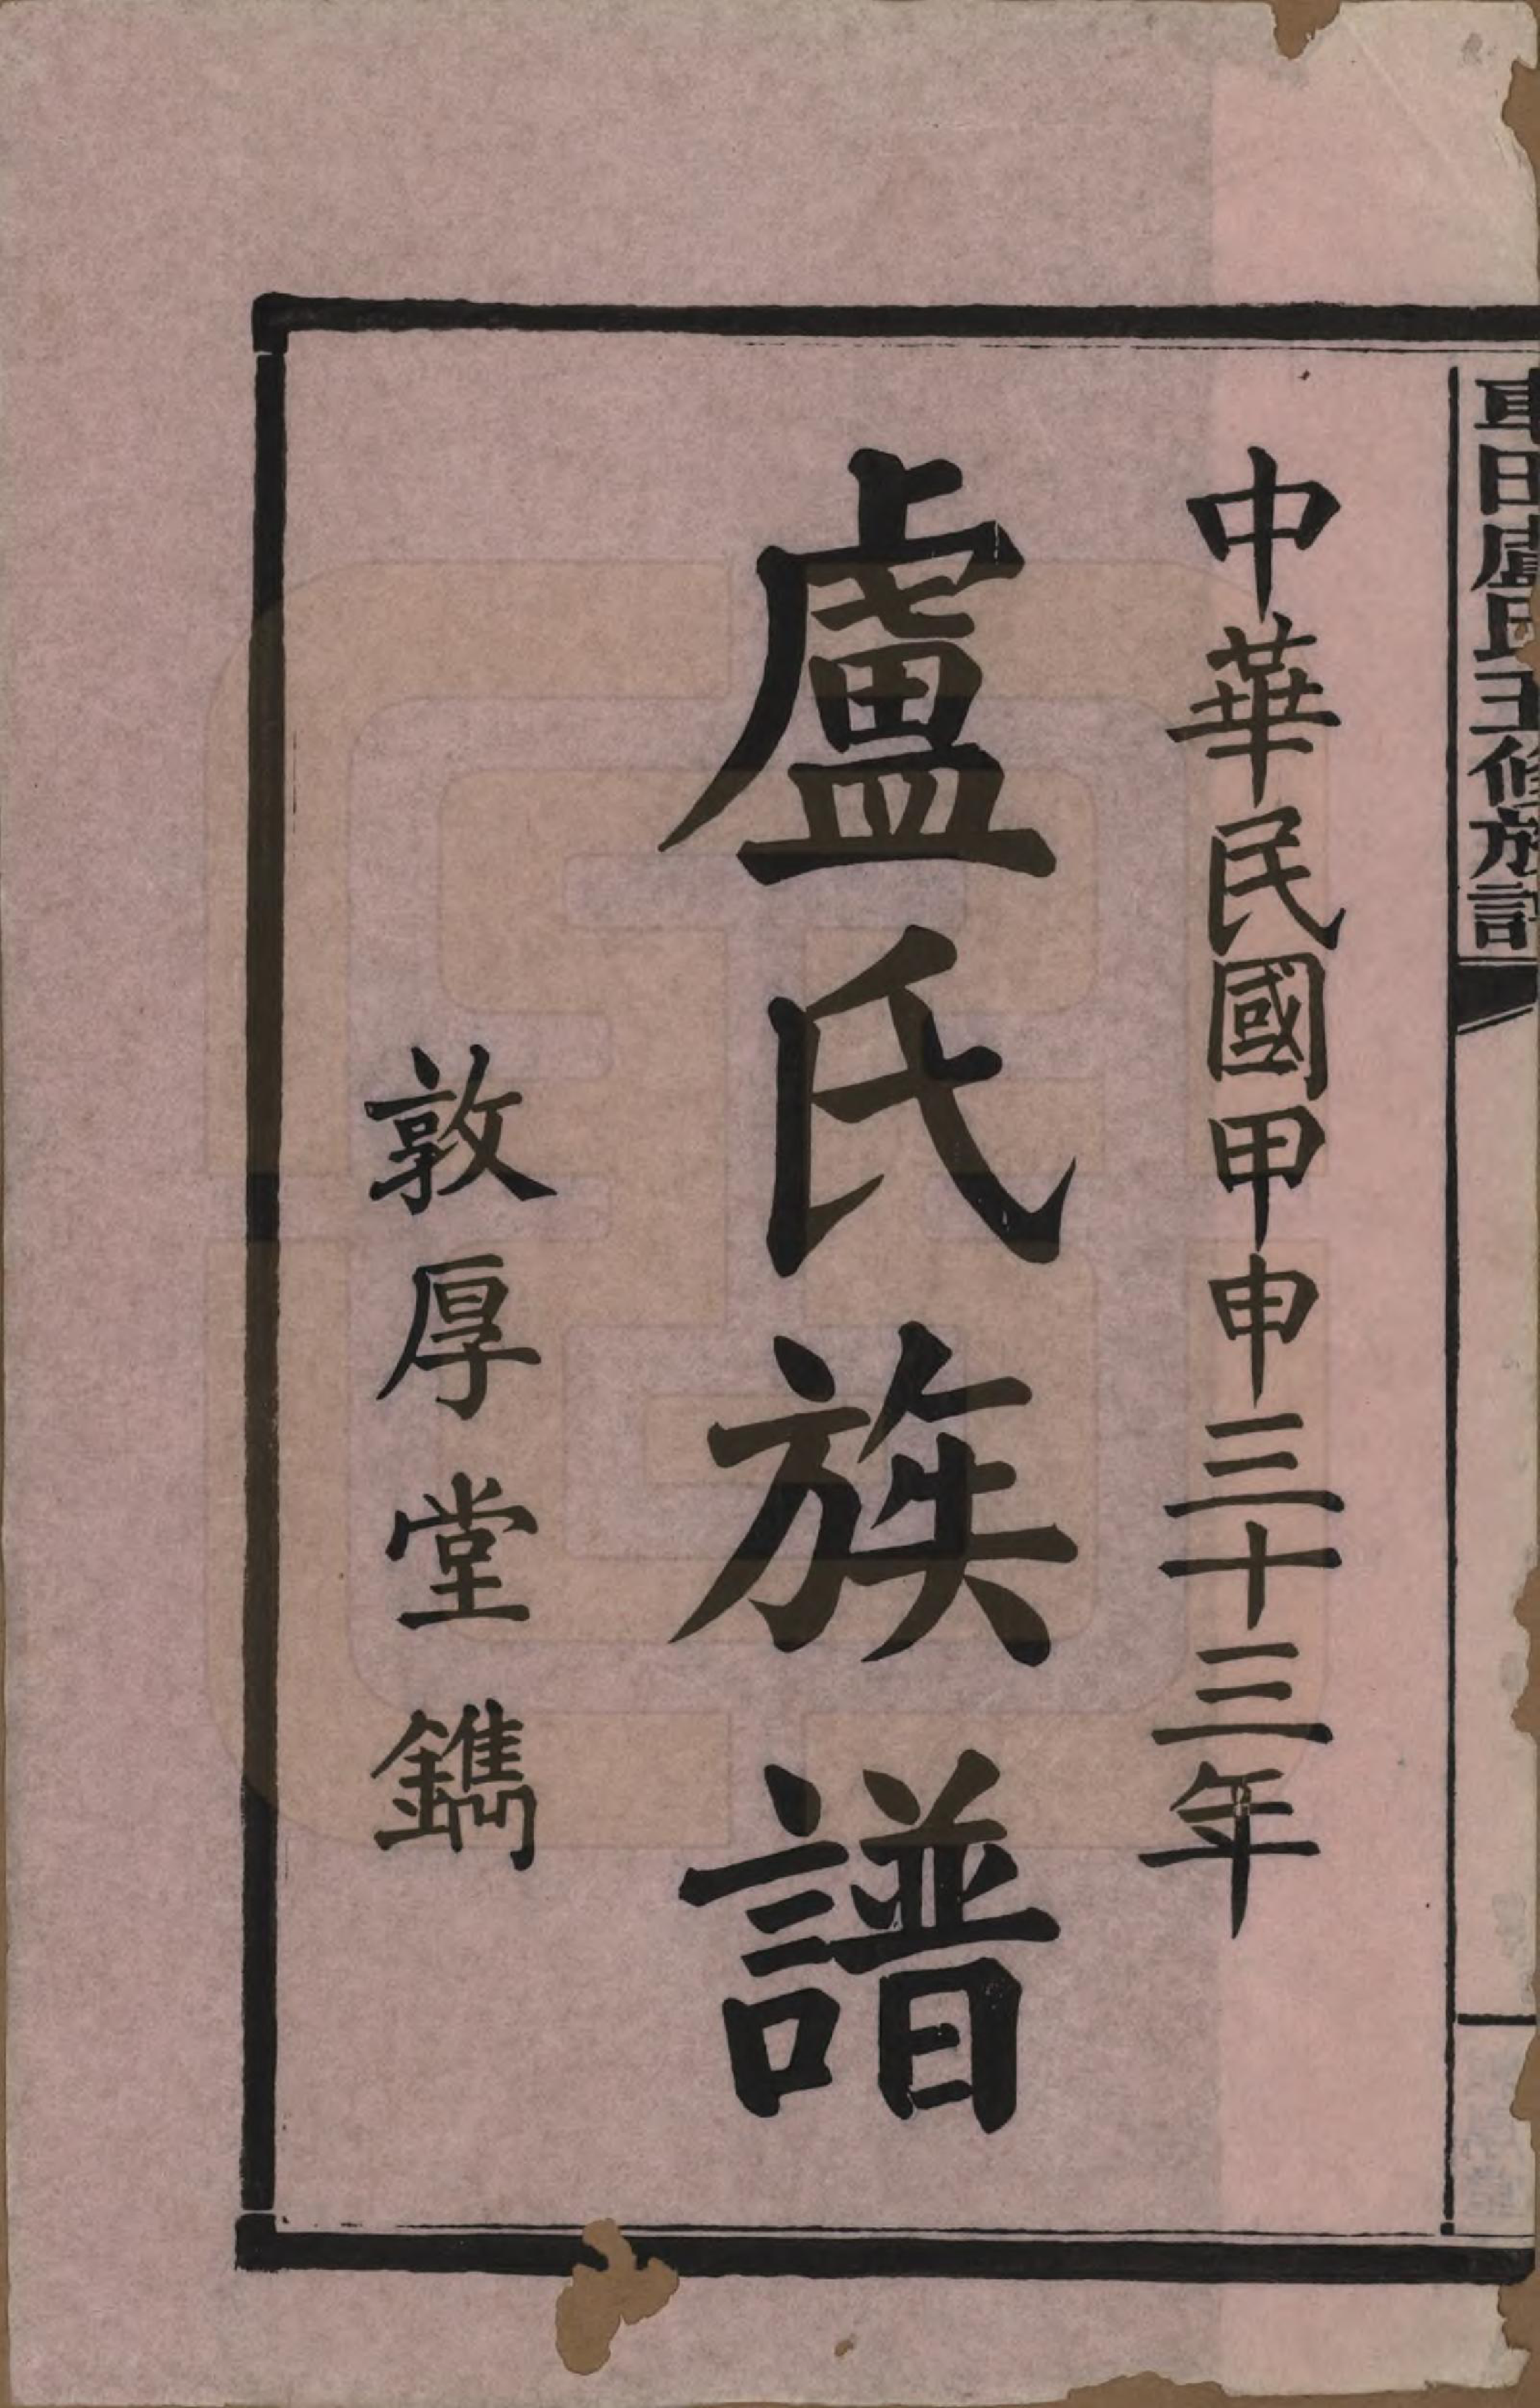 車田盧氏五修族譜
中華民國甲申三十三年
盧氏族譜
敦厚堂鐫